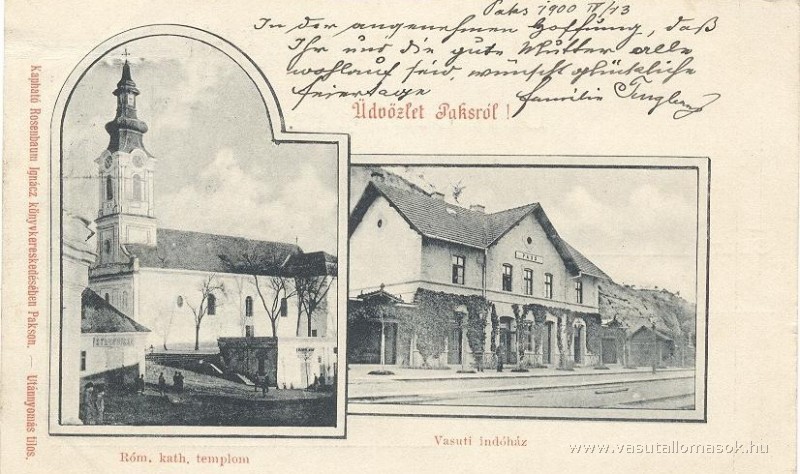 Paks 1900 IV/13
In der angenehmen Hoffnung, daß
Ihr und die gute Mutter alle
wohlauf seid, wünscht glückliche
feiertage Familie
Üdvözlet Paksról!
Kapható Rosenbaum Ignácz könyvkereskedésében Pakson. — Utánnyomás tilos.
PAKS
Róm. kath. templom
Vasuti indóház
© www.vasutallomasok.hu